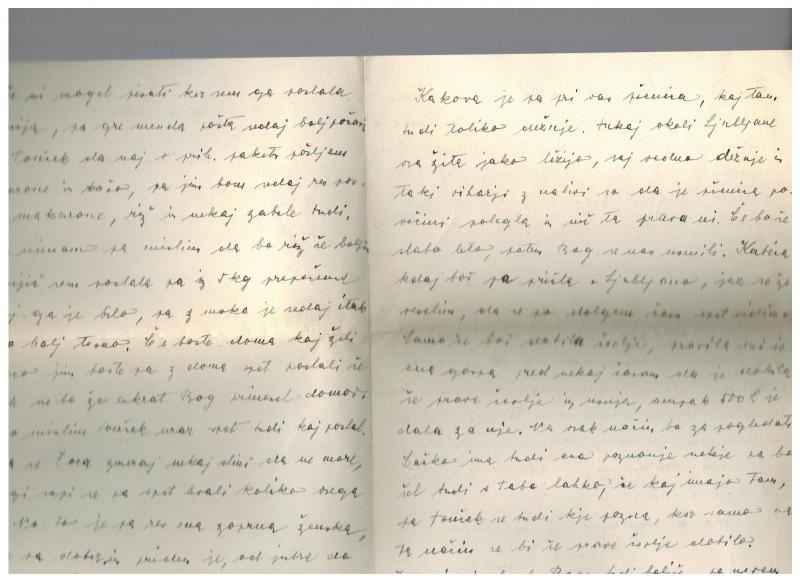 ni mogel pisati ker sem ga poslala
, pa gre menda pošta sedaj bolj počasi
Tonček da naj v prih. paketu pošljem
in kašo, pa jim bom sedaj res pos-
makarone, riž in nekaj zabele tudi.
nimam pa mislim da bo riž še boljši
sem poslala pa iz 5 kg
ga je bilo, pa z moko je sedaj itak
bolj tesno. Če boste doma kaj želi
jim boste pa z doma spet poslali če
ne bo že enkrat Bog prinesel domov.
mislim Tonček mora spet tudi kaj poslat.
se Zora zmeraj nekaj da ne more,
se pa spet bali koliko vsega
No to je pa res ena zoprna ženska,
pa dober in priden je, od jutra do
Kakova je pa pri vas pšenica, kaj tam
tudi toliko dežuje. Tukaj okoli Ljubljane
so žita jako, saj vedno dežuje in
taki viharji z nalivi so da je pšenica po
večini polegla in nič ta prava ni. Če bo še
slabo leto, potem Bog se nas usmili. Katica
kdaj boš pa prišla v Ljubljano, jaz se že
veselim, da se po dolgem času spet vidimo.
Samo če boš dobila čevlje, pravila mi je
ena gospa pred nekaj časom da je dobila
še prave čevlje iz usnja, ampak 500 L je
dala za nje. Na vsak način bo za pogledati
ima tudi eno poznanje nekje pa bo
šel tudi s Tabo lahko, če kaj imajo tam,
pa Tonček se tudi kje pozna, ker samo na
ta način se bi še prave čevlje dobilo.
Bog tudi boljše, pa